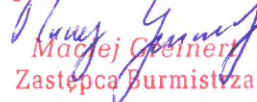 Maciej Greinert
Zastępca Burmistrza